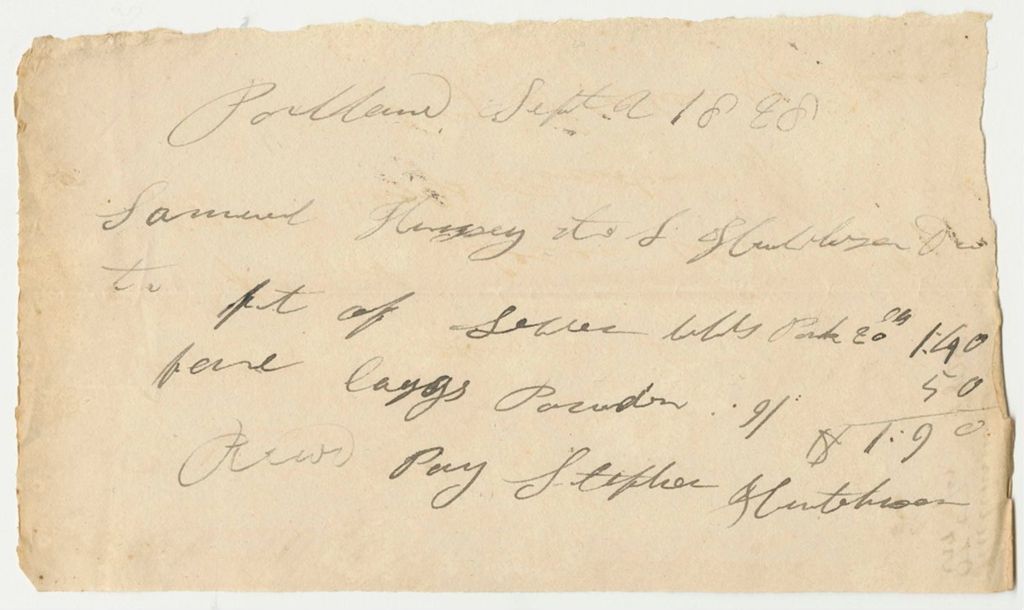 Portland Sept 2 1828
Samuel Hussey to S Hutchison Dr
to
frt of Seven bbls Pork 20 1.40
four Caggs Powder 50
$ 1.90
Recd Pay Stephen Hutchison